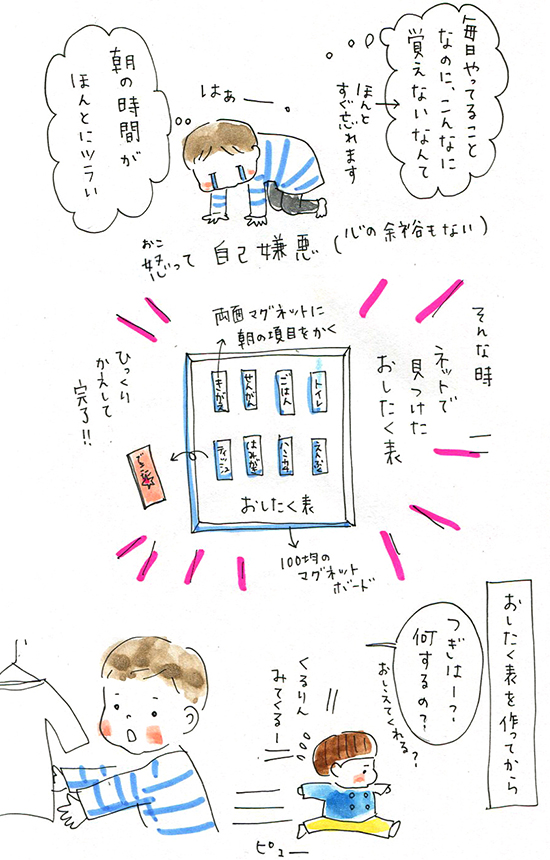 毎日やってること
なのに、こんなに
覚えないなんて
ほんと
すぐ忘れます
はぁー
朝の時間が
ほんとにツラい
おこ
怒って 自己嫌悪 (心の余裕もない)
そんな時
ネットで
見つけた
おしたく表
両面マグネットに
朝の項目をかく
トイレ
ごはん
せんがん
きがえ
ハンカチ
はみがき
ティッシュ
おしたく表
ひっくり
かえして
完了!!
100均の
マグネット
ボード
おしたく表を作ってから
つぎはー?
何するの?
おしえてくれる?
くるりん
みてくるー
ピューー